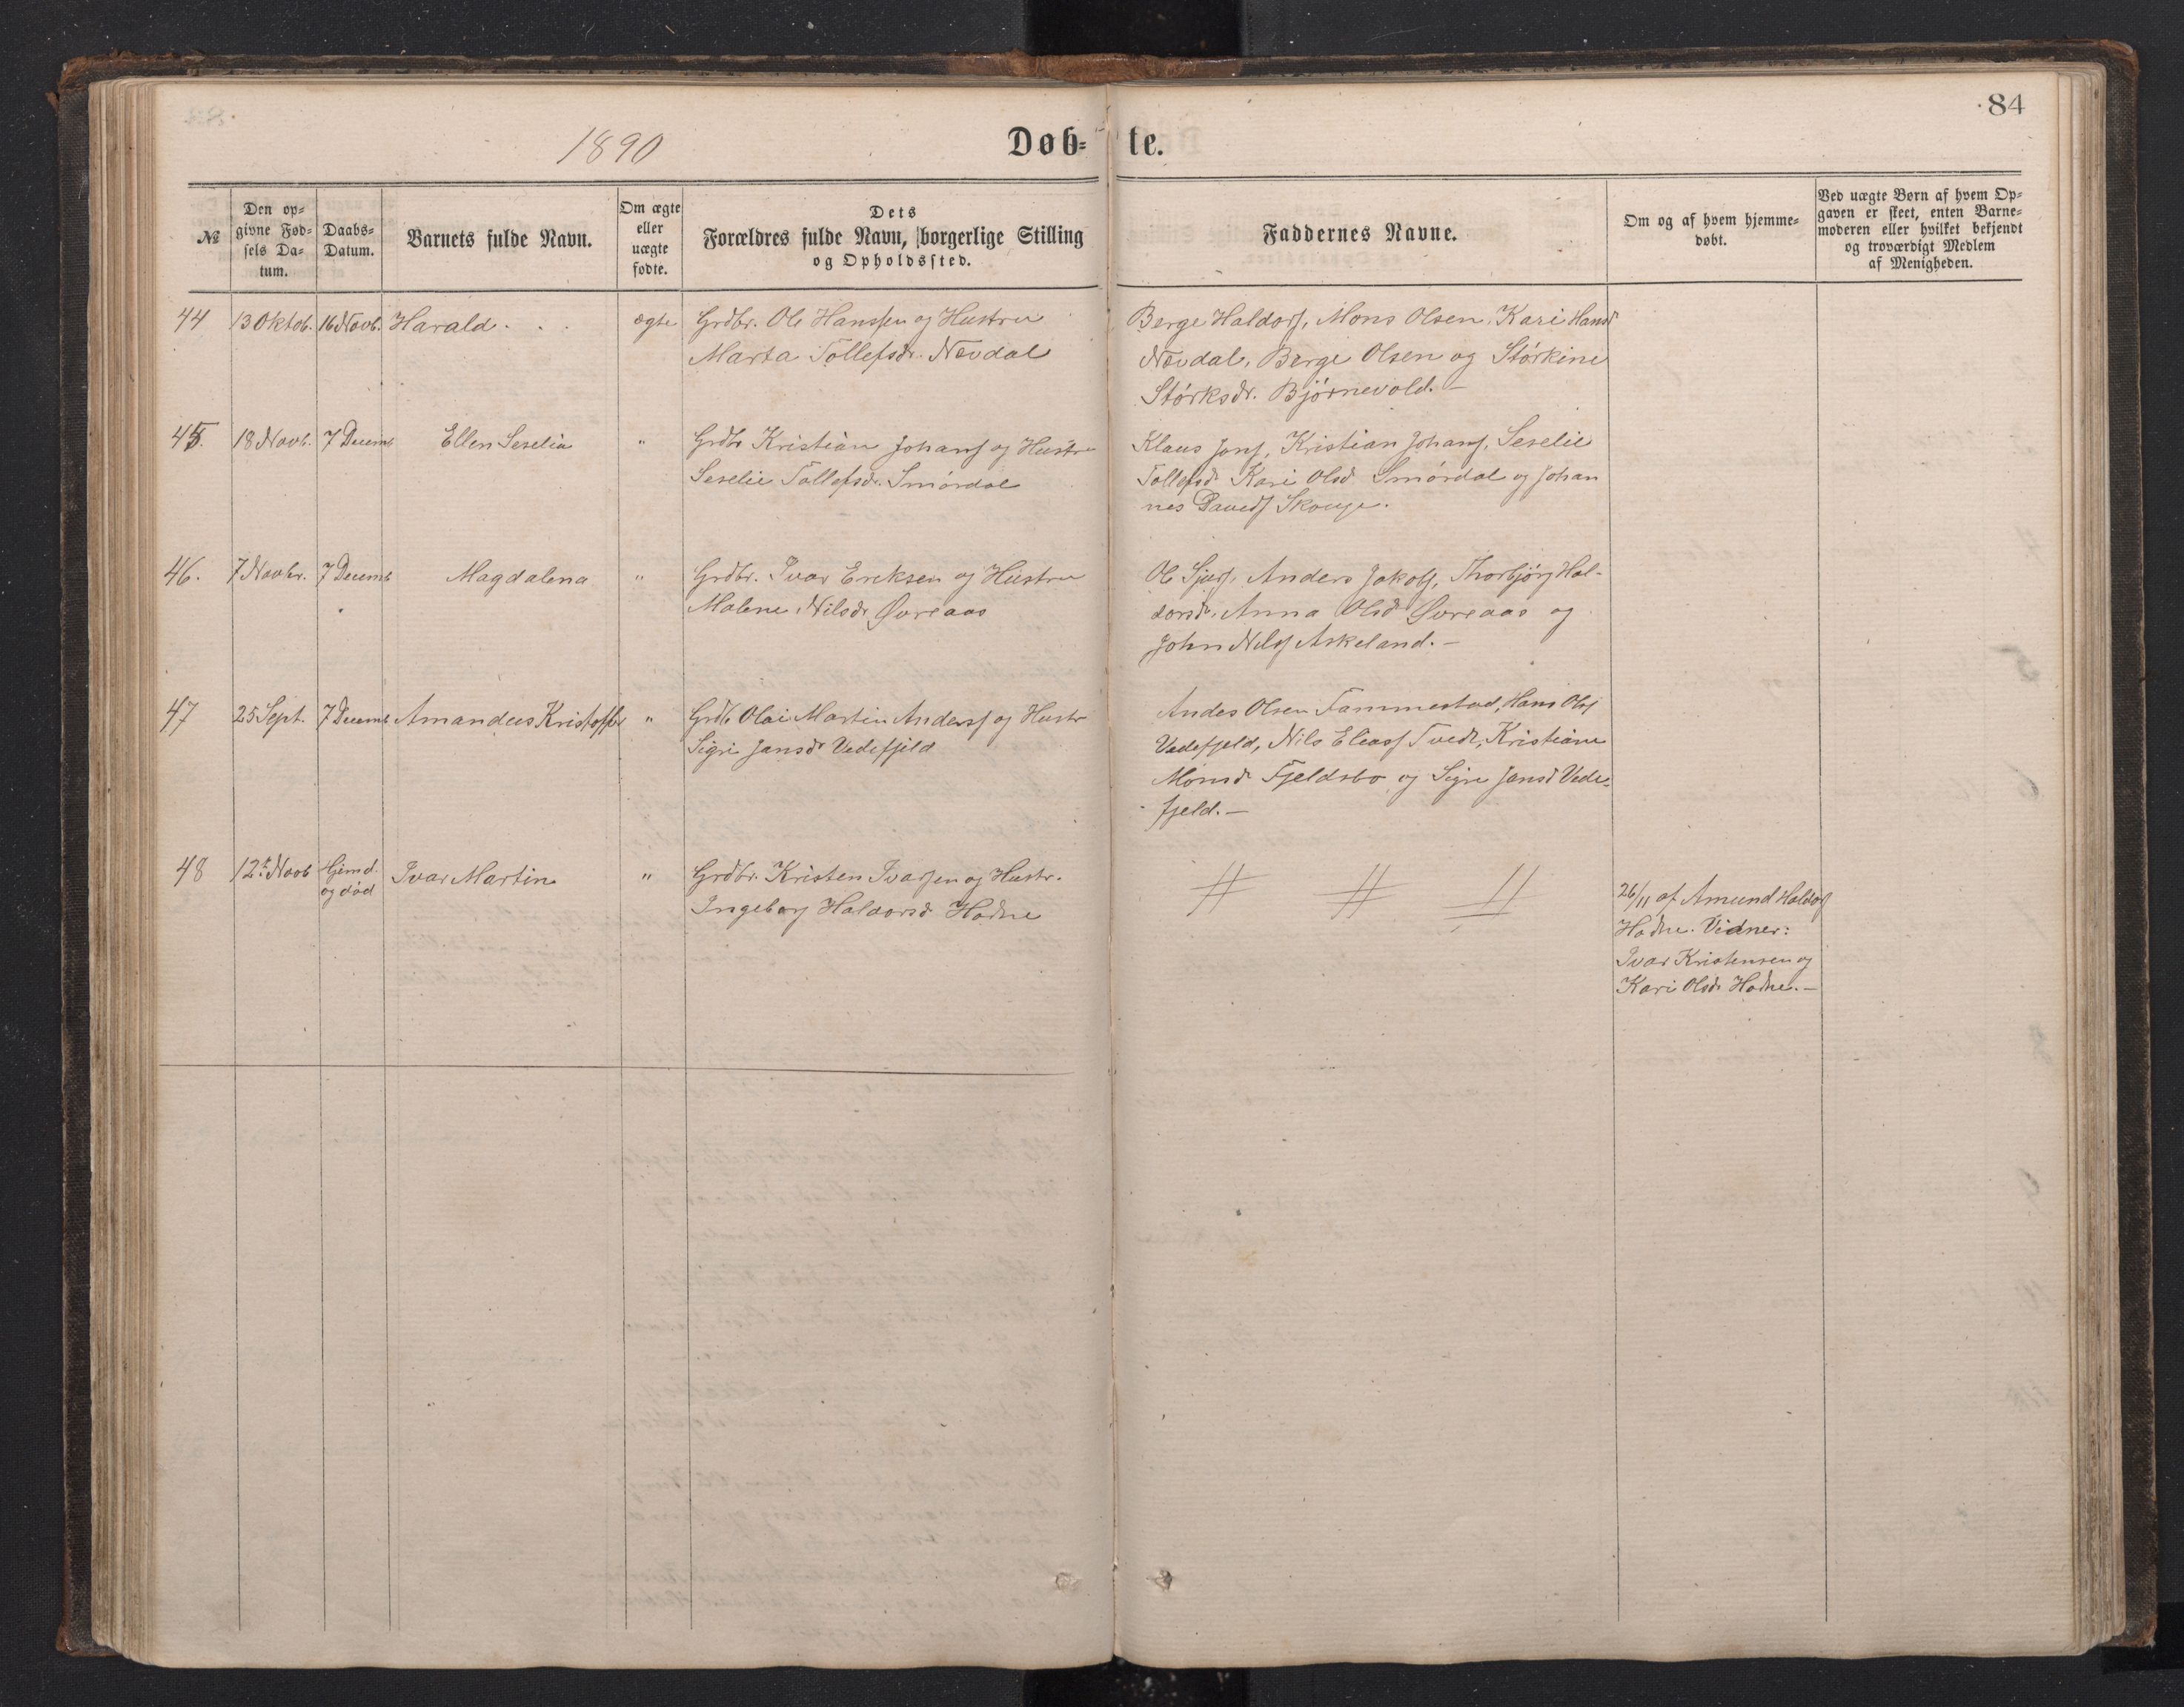 84
1890
Døb- te.
№
Den op-
givne Fød-
sels Da-
tum.
Daabs-
Datum.
Barnets fulde Navn.
Om ægte
eller
uægte
fødte.
Dets
Forældres fulde Navn, borgerlige Stilling
og Opholdssted.
Faddernes Navne.
Om og af hvem hjemme-
døbt.
Ved uægte Børn af hvem Op-
gaven er skeet, enten Barne-
moderen eller hvilket bekjendt
og troværdigt Medlem
af Menigheden.
44 13 Oktob. 16 Novb. Harald. . . ægte Grdbr. Ole Hanssen og Hustru
Marta Tollefsdr. Nævdal
Berge Haldorf, Mons Olsen, Kari Hansd
Nævdal, Berge Olsen og Størkine
Størksdr. Bjørnevold. –
45. 18 Novb. 7 Decemb Ellen Seselia " Grdbr Kristian Johans og Hustru
Seselie Tollefsdr. Smørdal
Klaus Jons, Kristian Johans, Seselie
Tollefsdr Kari Olsd Smørdal og Johan
nes Davids Skouge.
46. 7 Novbr. 7 Decemb Magdalena " Grdbr. Ivar Ereksen og Hustru
Malene Nilsdr Øvreaas
Ole Sjurs, Anders Jakobs, Thorbjørg Hal-
dorsdr. Anna Olsd Øvreaas og
John Nilss Askeland. –
47 25 Sept. 7 Decemb Amandus Kristoffer " Grdb Olai Martin Anderss og Hustr
Sigri Jansdr Vedefjeld
Andes Olsen Tammestad, Hans Ols
Vedefjeld, Nils Eliass Tvedt, Kristiane
Monsd Fjeldsbo og Sigri Jansd Vede-
fjeld. –
48 12te Novb Hjemd. Ivar Martin " Grdbr. Kristen Ivarsen og Hustr.
og død
Ingeborg Haldorsd Hodne
26/11 af Amund Haldors
Hodne. Vidner:
Ivar Kristensen og
Kari Olsdr Hodne. –